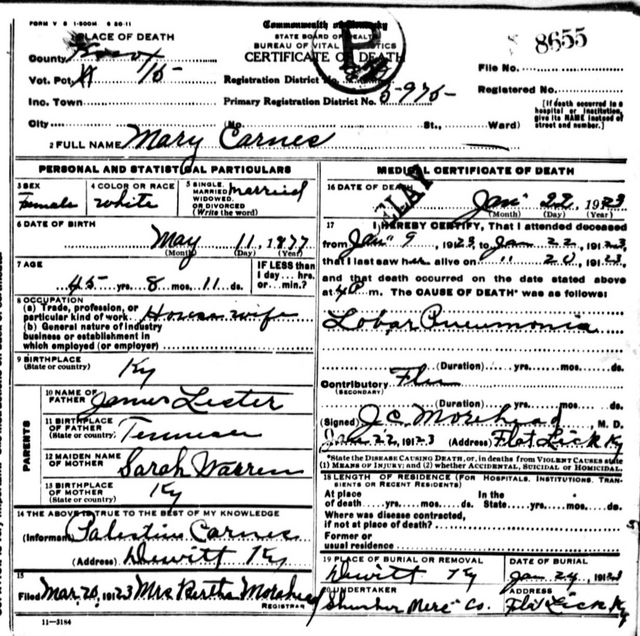 FORM V S 1-500M 6 20-11
Commonwealth of Kentucky
STATE BOARD OF HEALTH
BUREAU OF VITAL STATISTICS
CERTIFICATE OF DEATH
8655
1 PLACE OF DEATH
County Knox
Vot. Pct. 15
Inc. Town
City
Registration District No.
Primary Registration District No. 5-975-
(No. St., Ward)
File No.
Registered No.
[If death occurred in a
hospital or institution,
give its NAME instead of
street and number.]
2 FULL NAME Mary Carnes
DELAY
PERSONAL AND STATISTICAL PARTICULARS
3 SEX
Female
4 COLOR OR RACE
White
5 SINGLE,
MARRIED,
WIDOWED,
OR DIVORCED
(Write the word)
Married
6 DATE OF BIRTH
May 11, 1877
(Month) (Day) (Year)
7 AGE
45 yrs. 8 mos. 11 ds.
IF LESS than
1 day... hrs.
or... min.?
8 OCCUPATION
(a) Trade, profession, or
particular kind of work House wife
(b) General nature of industry
business or establishment in
which employed (or employer)
9 BIRTHPLACE
(State or country)
Ky
PARENTS
10 NAME OF
FATHER James Lester
11 BIRTHPLACE
OF FATHER
(State or country) Tennessee
12 MAIDEN NAME
OF MOTHER Sarah Warren
13 BIRTHPLACE
OF MOTHER
(State or country) Ky
14 THE ABOVE IS TRUE TO THE BEST OF MY KNOWLEDGE
(Informant) Palestine Carnes
(Address) Dewitt Ky
15
Filed Mar. 20, 1923 Mrs Bertha Morehead
REGISTRAR
11-3184
MEDICAL CERTIFICATE OF DEATH
16 DATE OF DEATH
Jan 22, 1923
(Month) (Day) (Year)
17 I HEREBY CERTIFY, That I attended deceased
from Jan 9, 1923, to Jan 22, 1923,
that I last saw her alive on " 20, 1923,
and that death occurred on the date stated above
at 4 P m. The CAUSE OF DEATH* was as follows:
Lobar Pneumonia
(Duration) yrs. mos. ds.
Contributory Flu
(SECONDARY)
(Duration) yrs. mos. ds.
(Signed) J.C. Morehead, M. D.
Jan 22, 1923 (Address) Flat Lick Ky
*State the DISEASE CAUSING DEATH, or, in deaths from VIOLENT CAUSES state
(1) MEANS OF INJURY; and (2) whether ACCIDENTAL, SUICIDAL OR HOMICIDAL.
18 LENGTH OF RESIDENCE (FOR HOSPITALS, INSTITUTIONS, TRANSIENTS OR RECENT RESIDENTS)
At place
of death yrs. mos. ds.
In the
State yrs. mos. ds.
Where was disease contracted,
if not at place of death?
Former or
usual residence
19 PLACE OF BURIAL OR REMOVAL
Dewitt Ky
DATE OF BURIAL
Jan 24, 1923
20 UNDERTAKER
Merc Co.
ADDRESS
Flat Lick Ky